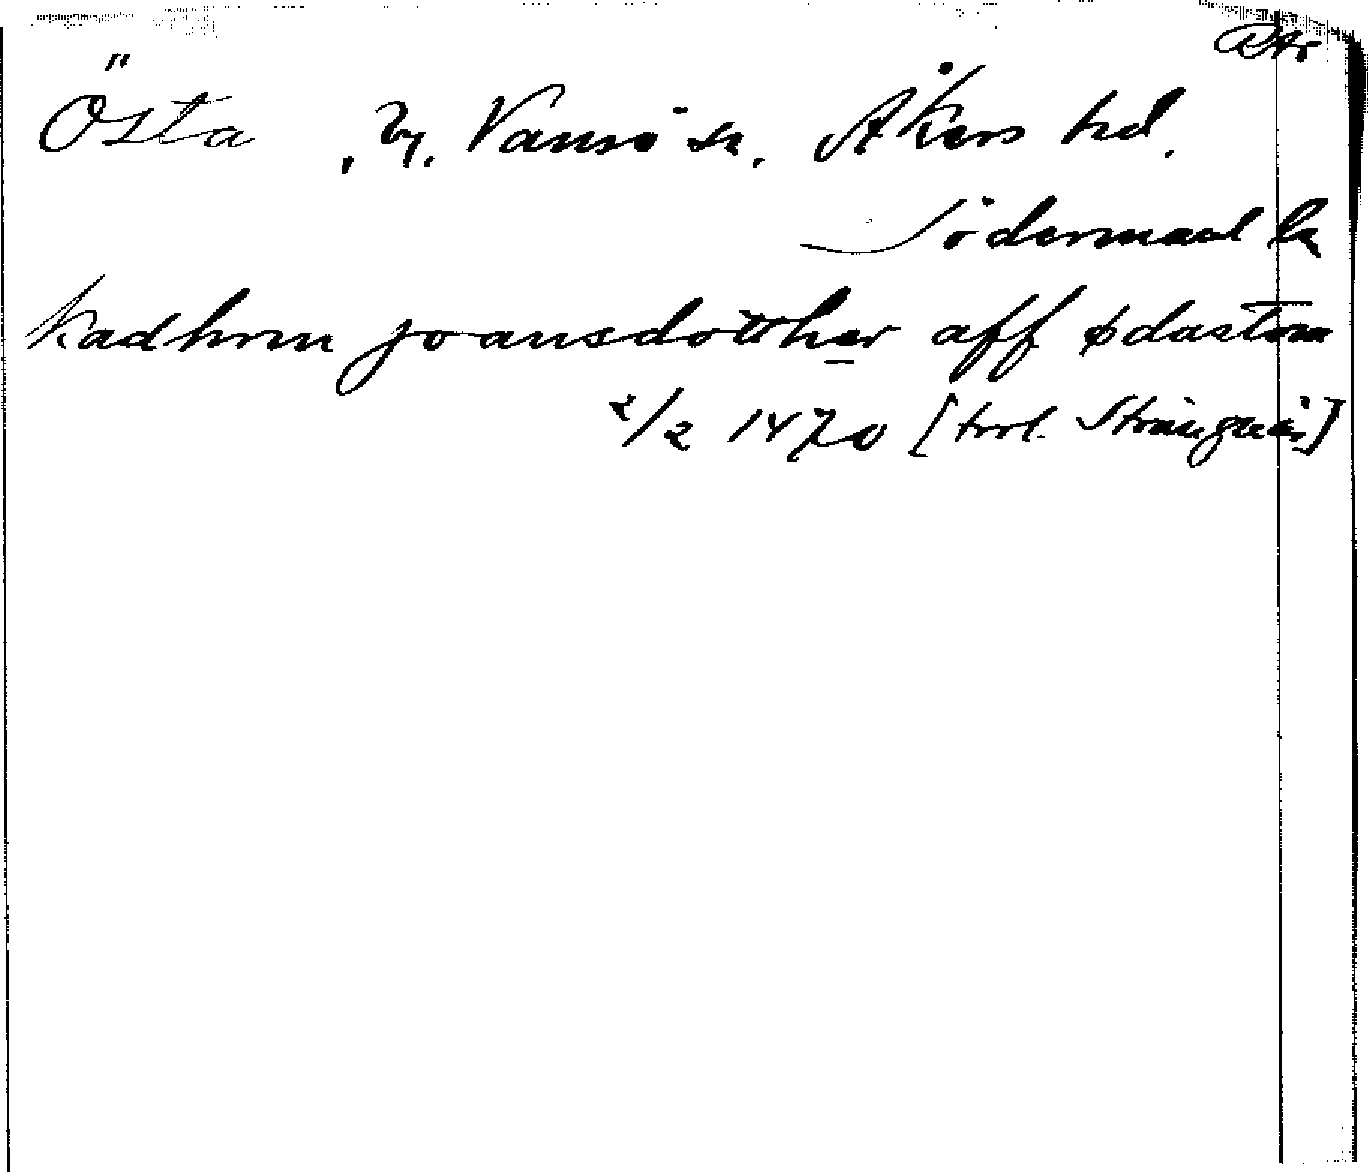 Östa, by. Vansö sn. Åkers hd.
Södermanl ln
kadhrin joansdotther aff ødastom
2/2 1470 [trol. Strängnäs]